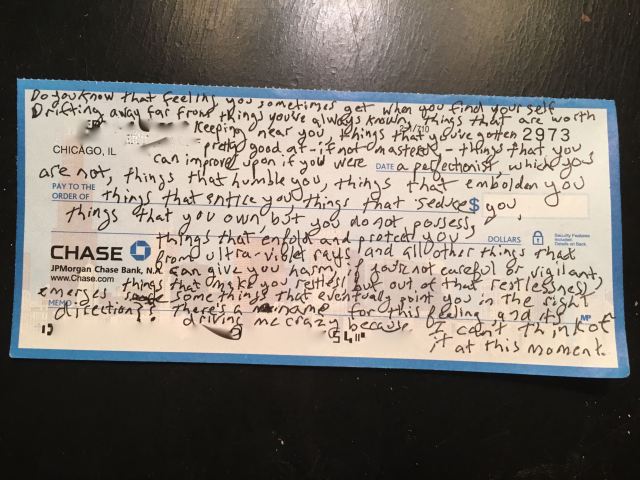 Do you know that feeling you sometimes get when you find yourself
Drifting away far from things you've always known, things that are worth
Keeping near you, things that you've gotten 2973
pretty good at - if not mastered - things that you
CHICAGO, IL
can improve upon if you were DATE a perfectionist, which you
are not, things that humble you, things that embolden you
PAY TO THE
ORDER OF things that entice you things that seduce $ you,
things that you own, but you do not possess,
things that enfold and protect you DOLLARS Security Features Included. Details on Back.
CHASE from ultra-violet rays and all other things that
JPMorgan Chase Bank, N.A. can give you harm, if you're not careful or vigilant,
www.Chase.com things that make you restless but out of that restlessness,
emerges some things that eventually point you in the right
MEMO MP
direction? There's a name for this feeling and it's
driving me crazy because I can't think of
it at this moment.